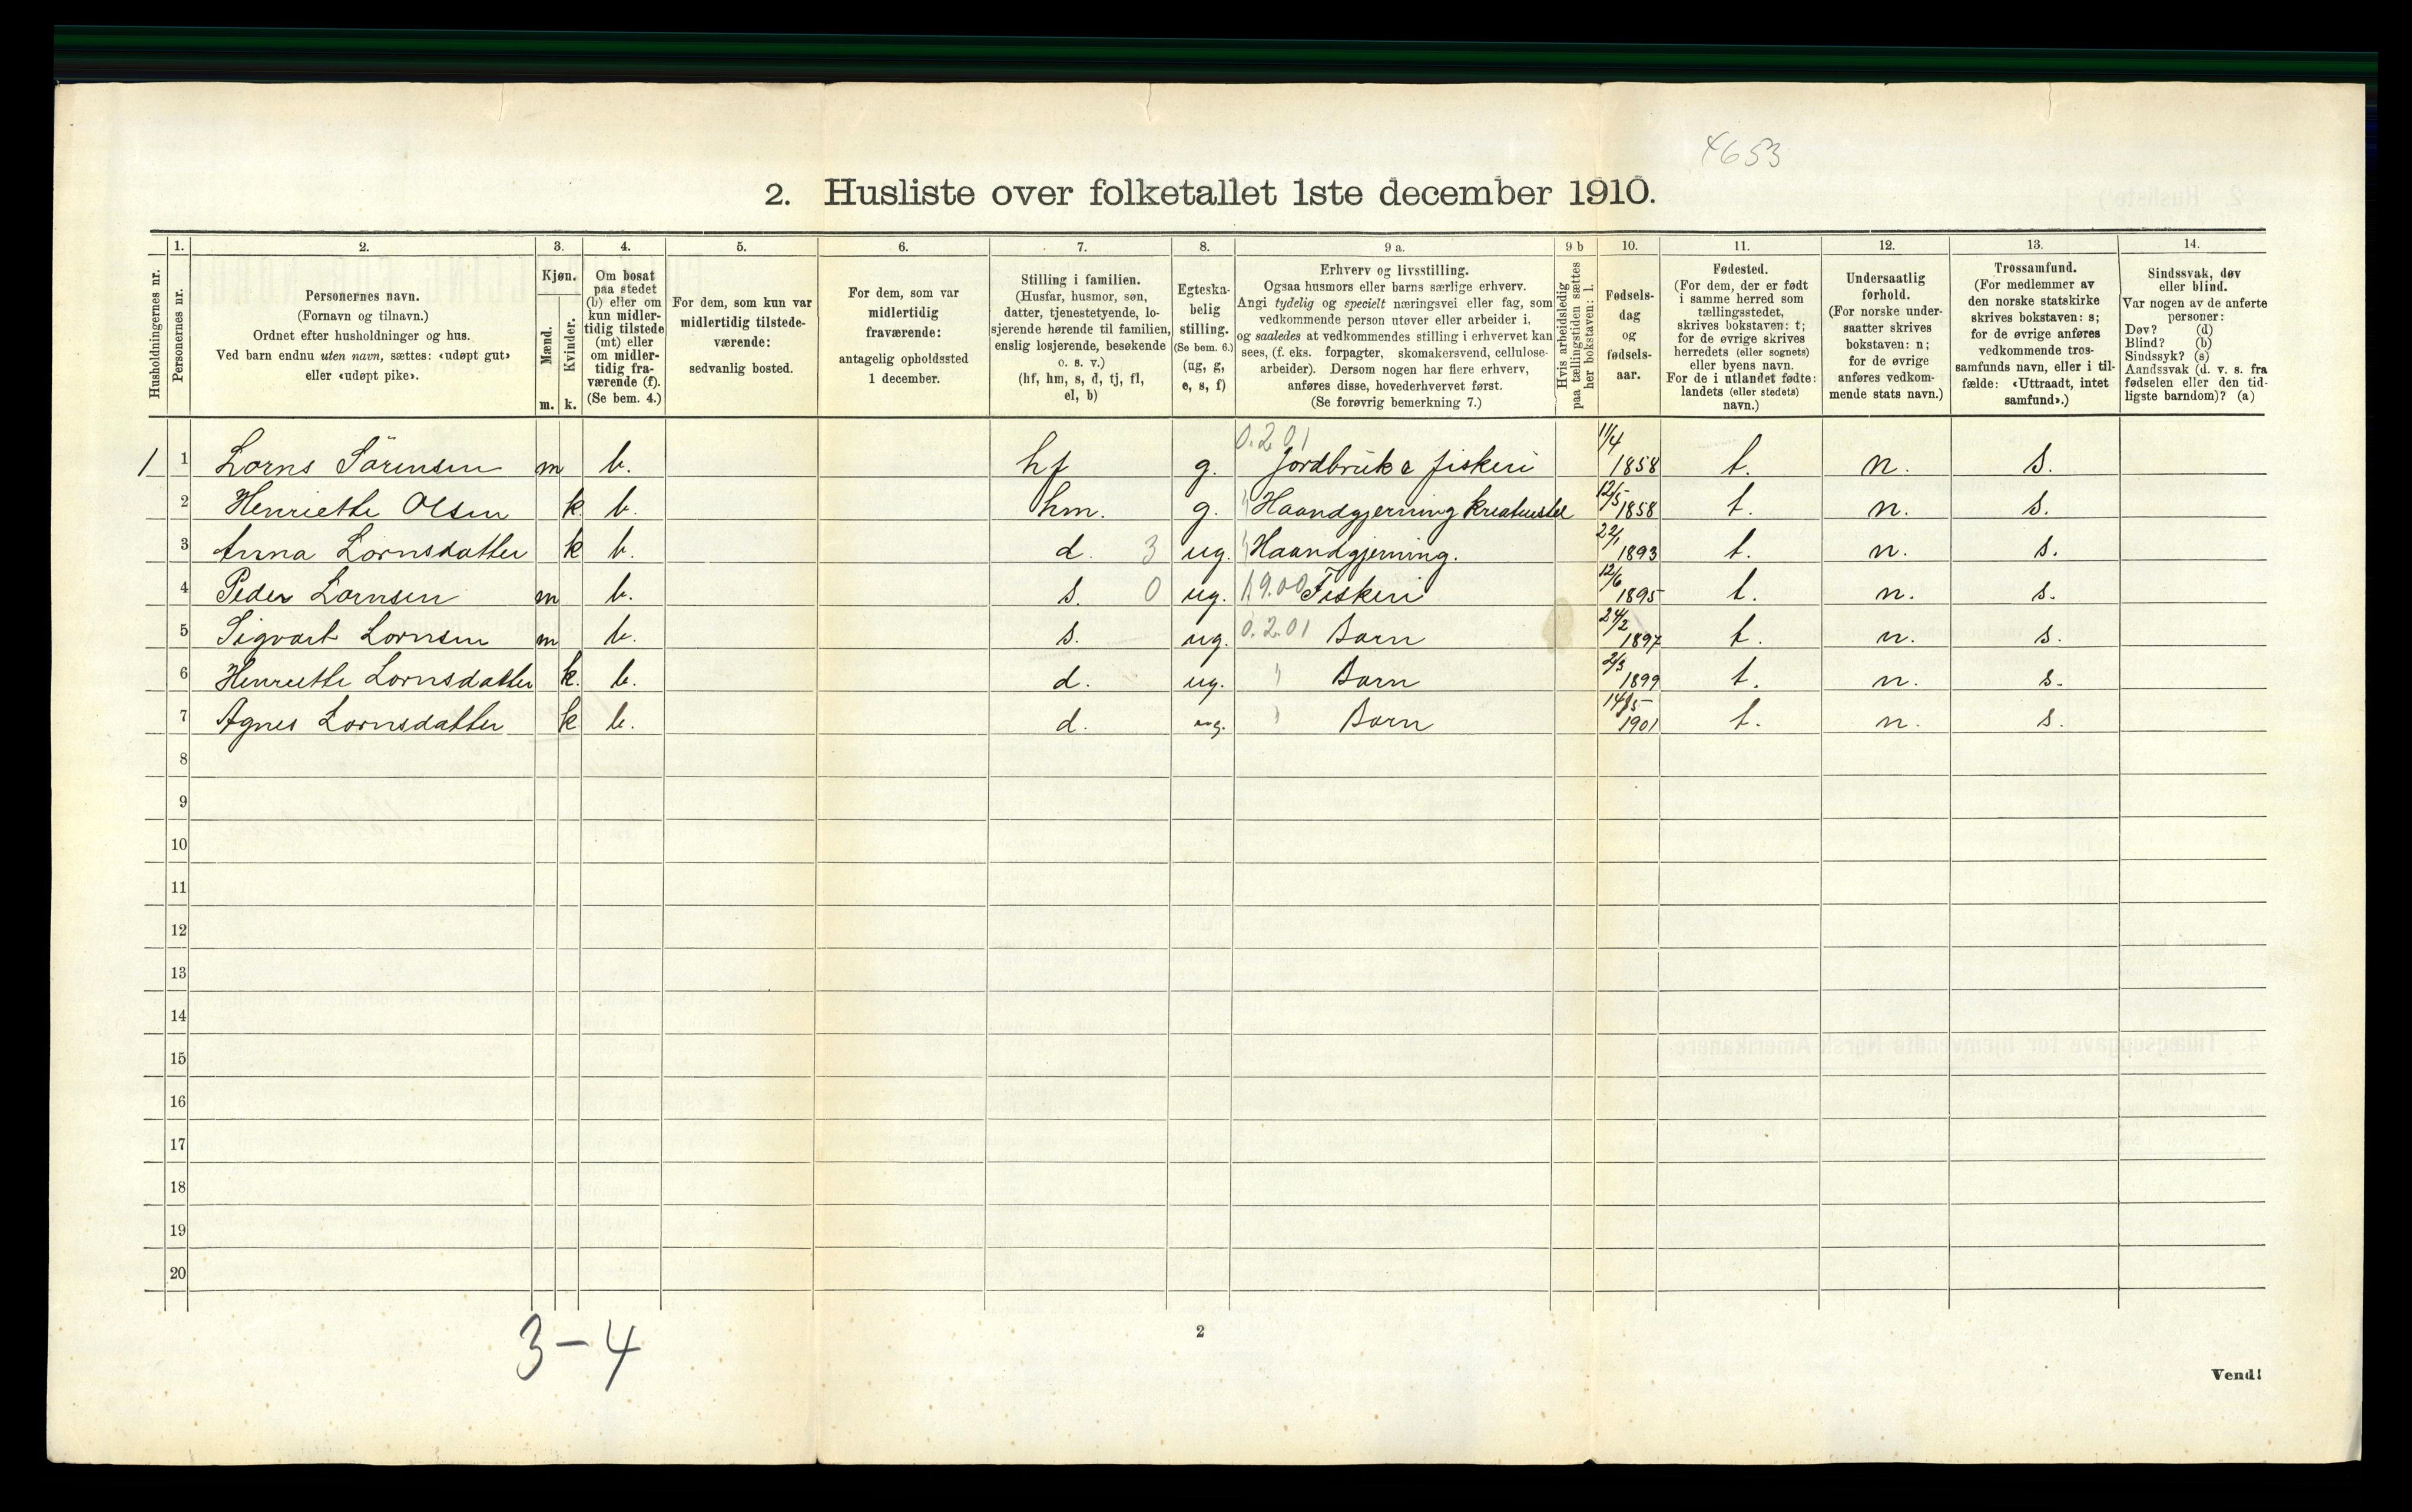 4653
2. Husliste over folketallet 1ste december 1910.
1. 2. 3. 4. 5. 6. 7. 8. 9 a. 9 b 10. 11. 12. 13. 14.
Husholdningernes nr.
Personernes nr.
Personernes navn.
(Fornavn og tilnavn.)
Ordnet efter husholdninger og hus.
Ved barn endnu uten navn, sættes: «udøpt gut»
eller «udøpt pike».
Kjøn.
Mænd.
Kvinder.
m. k.
Om bosat
paa stedet
(b) eller om
kun midler-
tidig tilstede
(mt) eller
om midler-
tidig fra-
værende (f).
(Se bem. 4.)
For dem, som kun var
midlertidig tilstede-
værende:
sedvanlig bosted.
For dem, som var
midlertidig
fraværende:
antagelig opholdssted
1 december.
Stilling i familien.
(Husfar, husmor, søn,
datter, tjenestetyende, lo-
sjerende hørende til familien,
enslig losjerende, besøkende
o. s. v.)
(hf, hm, s, d, tj, fl,
el, b)
Egteska-
belig
stilling.
(Se bem. 6.)
(ug, g,
e, s, f)
Erhverv og livsstilling.
Ogsaa husmors eller barns særlige erhverv.
Angi tydelig og specielt næringsvei eller fag, som
vedkommende person utøver eller arbeider i,
og saaledes at vedkommendes stilling i erhvervet kan
sees, (f. eks. forpagter, skomakersvend, cellulose-
arbeider). Dersom nogen har flere erhverv,
anføres disse, hovederhvervet først.
(Se forøvrig bemerkning 7.)
Hvis arbeidsledig
paa tællingstiden sættes
her bokstaven: l.
Fødsels-
dag
og
fødsels-
aar.
Fødested.
(For dem, der er født
i samme herred som
tællingsstedet,
skrives bokstaven: t;
for de øvrige skrives
herredets (eller sognets)
eller byens navn.
For de i utlandet fødte:
landets (eller stedets)
navn.)
Undersaatlig
forhold.
(For norske under-
saatter skrives
bokstaven: n;
for de øvrige
anføres vedkom-
mende stats navn.)
Trossamfund.
(For medlemmer av
den norske statskirke
skrives bokstaven: s;
for de øvrige anføres
vedkommende tros-
samfunds navn, eller i til-
fælde: «Uttraadt, intet
samfund».)
Sindssvak, døv
eller blind.
Var nogen av de anførte
personer:
Døv? (d)
Blind? (b)
Sindssyk? (s)
Aandssvak (d. v. s. fra
fødselen eller den tid-
ligste barndom)? (a)
1 1 Lorns Sörensen m b. hf g. 0.2.01 Jordbruk & fiskeri 11/4 1858 t. n. s.
2 Henriette Olsen k b. hm. g. " Haandgjerning kreaturstel 12/5 1858 t. n. s.
3 Anna Lornsdatter k b. d. 3 ug. " Haandgjerning. 22/1 1893 t. n. s.
4 Peder Lornsen m b. s. 0 ug. 1.9.00 Fiskeri 12/6 1895 t. n. s.
5 Sigvart Lornsen m b. s. ug. 0.2.01 Barn 24/2 1897 t. n. s.
6 Henriette Lornsdatter k. b. d. ug. " Barn 2/3 1899 t. n. s.
7 Agnes Lornsdatter k b. d. ug. " Barn 14/5 1901 t. n. s.
8
9
10
11
12
13
14
15
16
17
18
19
20
3-4
2
Vend!